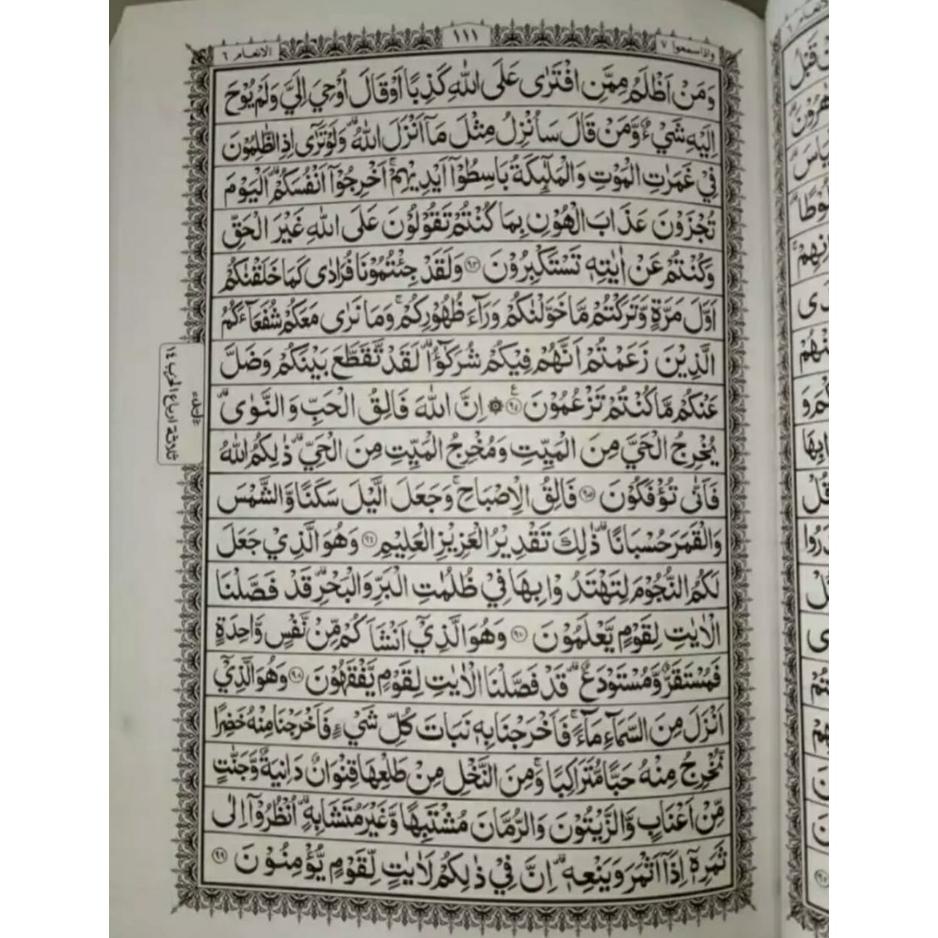 واذاسمعوا ٧
١١١
الانعام ٦
وَمَنْ اَظْلَمُ مِمَّنِ افْتَرٰى عَلَى اللّٰهِ كَذِبًا اَوْقَالَ اُوْحِيَ اِلَيَّ وَلَمْ يُوْحَ
اِلَيْهِ شَيْءٌ وَّمَنْ قَالَ سَاُنْزِلُ مِثْلَ مَآ اَنْزَلَ اللّٰهُ ۗ وَلَوْتَرٰٓى اِذِ الظّٰلِمُوْنَ
فِيْ غَمَرٰتِ الْمَوْتِ وَالْمَلٰٓىِٕكَةُ بَاسِطُوْٓا اَيْدِيْهِمْۚ اَخْرِجُوْٓا اَنْفُسَكُمْۗ اَلْيَوْمَ
تُجْزَوْنَ عَذَابَ الْهُوْنِ بِمَا كُنْتُمْ تَقُوْلُوْنَ عَلَى اللّٰهِ غَيْرَ الْحَقِّ
وَكُنْتُمْ عَنْ اٰيٰتِهٖ تَسْتَكْبِرُوْنَ ٩٣ وَلَقَدْ جِئْتُمُوْنَا فُرَادٰى كَمَا خَلَقْنٰكُمْ
اَوَّلَ مَرَّةٍ وَّتَرَكْتُمْ مَّا خَوَّلْنٰكُمْ وَرَآءَ ظُهُوْرِكُمْۚ وَمَا نَرٰى مَعَكُمْ شُفَعَآءَكُمُ
الَّذِيْنَ زَعَمْتُمْ اَنَّهُمْ فِيْكُمْ شُرَكٰۤؤُا ۗ لَقَدْ تَّقَطَّعَ بَيْنَكُمْ وَضَلَّ
عَنْكُمْ مَّا كُنْتُمْ تَزْعُمُوْنَ ࣖ ٩٤ ۞ اِنَّ اللّٰهَ فَالِقُ الْحَبِّ وَالنَّوٰىۗ
يُخْرِجُ الْحَيَّ مِنَ الْمَيِّتِ وَمُخْرِجُ الْمَيِّتِ مِنَ الْحَيِّ ۗ ذٰلِكُمُ اللّٰهُ
فَاَنّٰى تُؤْفَكُوْنَ ٩٥ فَالِقُ الْاِصْبَاحِۚ وَجَعَلَ الَّيْلَ سَكَنًا وَّالشَّمْسَ
وَالْقَمَرَ حُسْبَانًا ۗ ذٰلِكَ تَقْدِيْرُ الْعَزِيْزِ الْعَلِيْمِ ٩٦ وَهُوَ الَّذِيْ جَعَلَ
لَكُمُ النُّجُوْمَ لِتَهْتَدُوْا بِهَا فِيْ ظُلُمٰتِ الْبَرِّ وَالْبَحْرِۗ قَدْ فَصَّلْنَا
الْاٰيٰتِ لِقَوْمٍ يَّعْلَمُوْنَ ٩٧ وَهُوَ الَّذِيْٓ اَنْشَاَكُمْ مِّنْ نَّفْسٍ وَّاحِدَةٍ
فَمُسْتَقَرٌّ وَّمُسْتَوْدَعٌ ۗ قَدْ فَصَّلْنَا الْاٰيٰتِ لِقَوْمٍ يَّفْقَهُوْنَ ٩٨ وَهُوَ الَّذِيْٓ
اَنْزَلَ مِنَ السَّمَآءِ مَآءًۚ فَاَخْرَجْنَا بِهٖ نَبَاتَ كُلِّ شَيْءٍ فَاَخْرَجْنَا مِنْهُ خَضِرًا
نُّخْرِجُ مِنْهُ حَبًّا مُّتَرَاكِبًاۚ وَمِنَ النَّخْلِ مِنْ طَلْعِهَا قِنْوَانٌ دَانِيَةٌ وَّجَنّٰتٍ
مِّنْ اَعْنَابٍ وَّالزَّيْتُوْنَ وَالرُّمَّانَ مُشْتَبِهًا وَّغَيْرَ مُتَشَابِهٍۗ اُنْظُرُوْٓا اِلٰى
ثَمَرِهٖٓ اِذَآ اَثْمَرَ وَيَنْعِهٖ ۗ اِنَّ فِيْ ذٰلِكُمْ لَاٰيٰتٍ لِّقَوْمٍ يُّؤْمِنُوْنَ ٩٩
ثلاثة ارباع الحزب ١٤